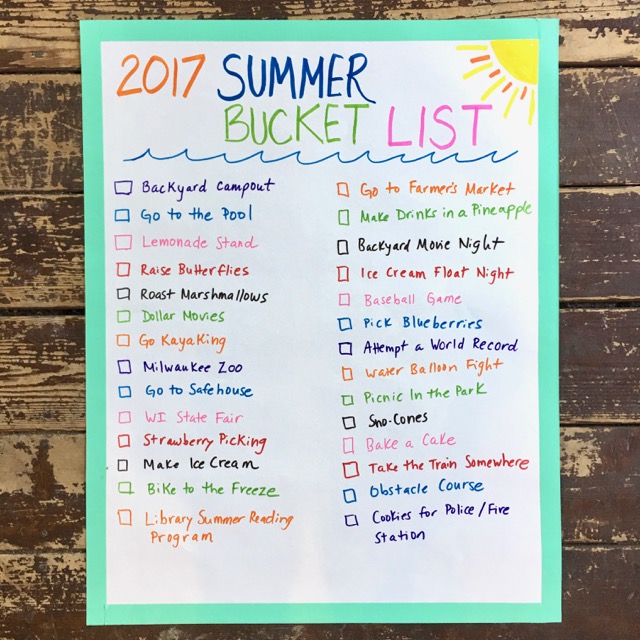 2017 SUMMER
BUCKET LIST
Backyard Campout
Go to the Pool
Lemonade Stand
Raise Butterflies
Roast Marshmallows
Dollar Movies
Go Kayaking
Milwaukee Zoo
Go to Safehouse
WI State Fair
Strawberry Picking
Make Ice Cream
Bike to the Freeze
Library Summer Reading
Program
Go to Farmer's Market
Make Drinks in a Pineapple
Backyard Movie Night
Ice Cream Float Night
Baseball Game
Pick Blueberries
Attempt a World Record
Water Balloon Fight
Picnic In the Park
Sno-Cones
Bake a Cake
Take the Train Somewhere
Obstacle Course
Cookies for Police/Fire
Station